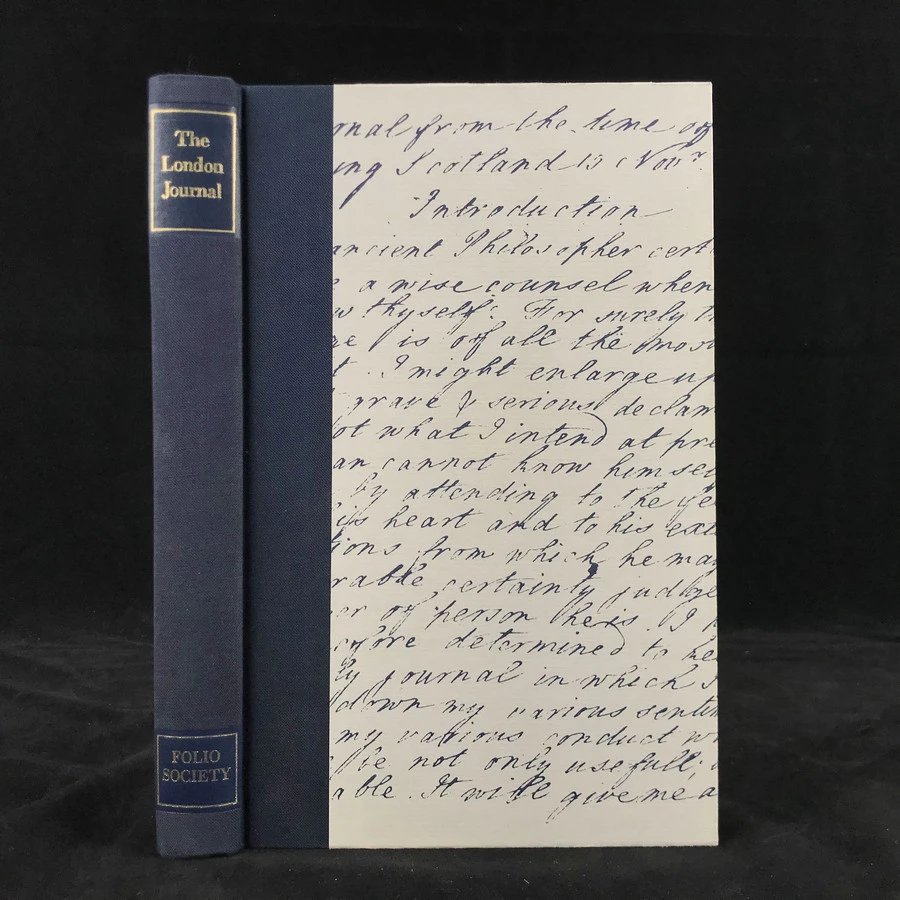 The
London
Journal
FOLIO
SOCIETY
rnal from the time of
ing Scotland 15 Novr.
Introduction
ancient Philosopher cert
a wise counsel when
w thyself. For surely t
is of all the mos
t. I might enlarge up
grave & serious declam
ot what I intend at pre
an cannot know himse
by attending to the fe
is heart and to his ext
ions from which he may
rable certainty judge
er of person he is. I h
efore determined to ke
ly journal in which I
down my various senti
my various conduct w
be not only usefull,
able. It will give me a